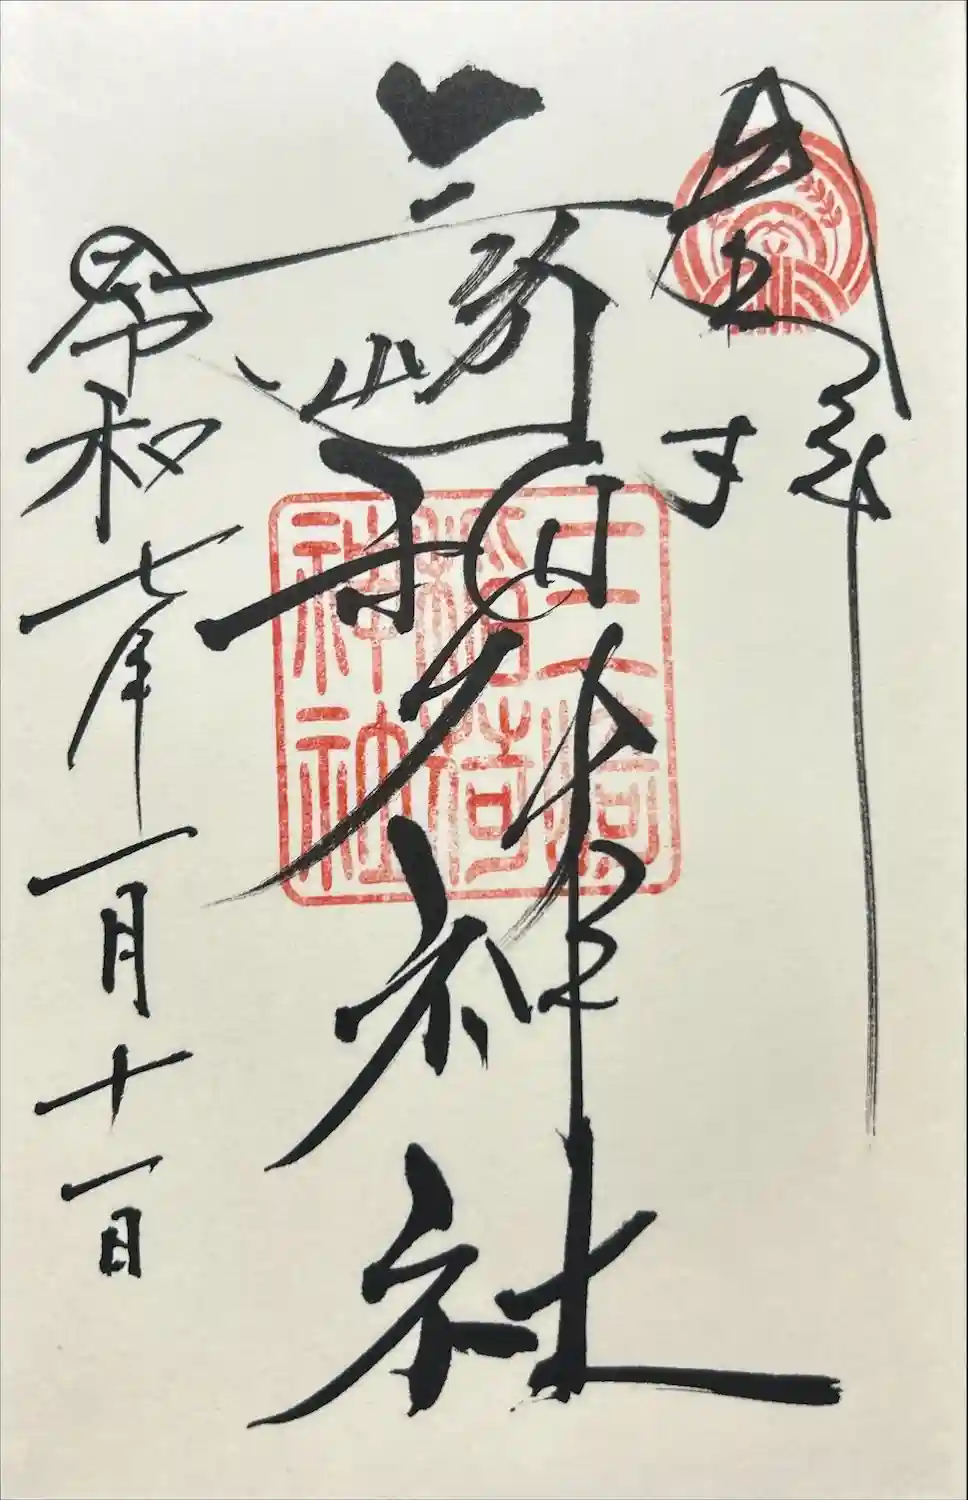 三崎稲荷神社
三崎稲荷神社
令和七年一月十一日